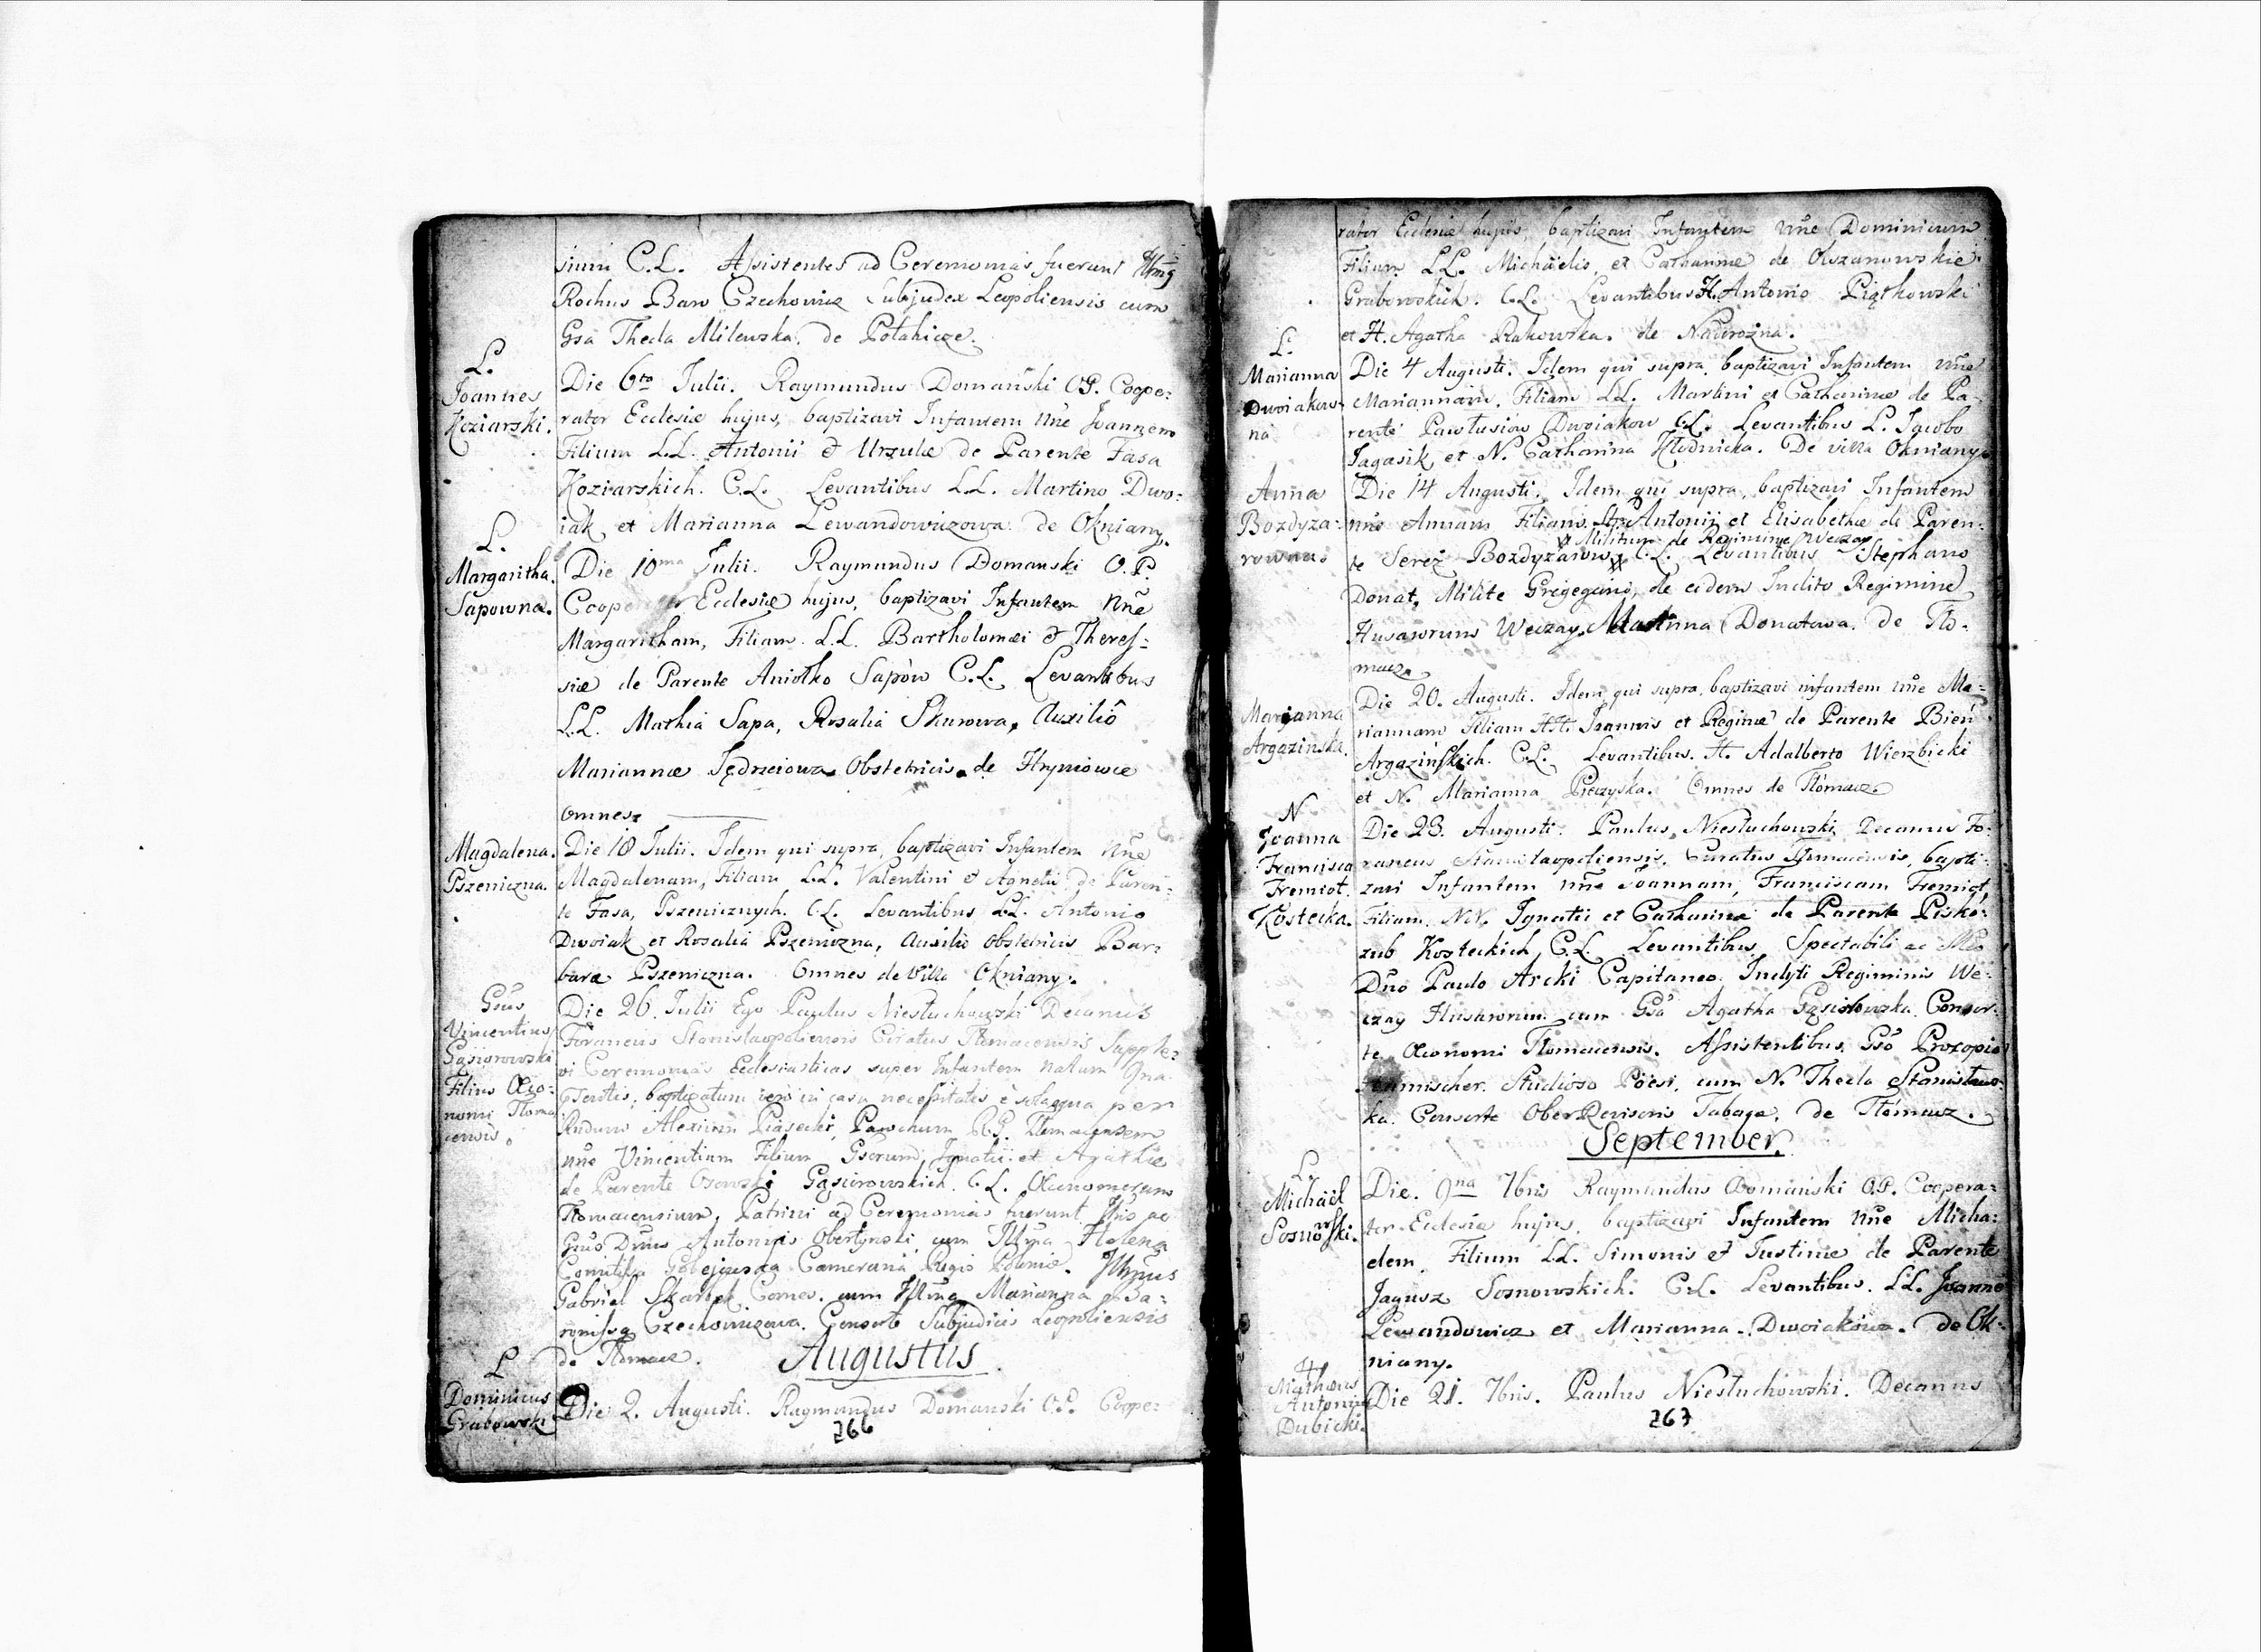 sium C.L. Assistentes ad Ceremonias fuerunt
Rochus Baro Czechowicz Subjudex Leopoliensis cum
Gsa Thecla Milewska. de Potahicze.
L.
Joannes
Koziarski.
Die 6to Julii. Raymundus Domański O.P. Coope:
rator Ecclesiæ hujus, baptizavi Infantem nñe Joannem
Filium L.L. Antonii & Urzulæ de Parente Fasa
Koziarskich. C.L. Levantibus L.L. Martino Dwo:
iak et Marianna Lewandowiczowa de Okniany.
L.
Margaritha.
Sapowna.
Die 10ma Julii. Raymundus Domanski O.P.
Ecclesiæ hujus, baptizavi Infantem nñe
Margaritham, Filiam L.L. Bartholomæi & Theres:
siæ de Parente Aniołko Sapów C.L. Levantibus
L.L. Mathia Sapa, Rosalia Skurowa, Auxiliô
Mariannæ Jędrzeiowa Obstetricis de Hryniowce
omnes.
Magdalena.
Pszeniczna.
Die 18 Julii. Idem qui supra, baptizavi Infantem nñe
Magdalenam, Filiam L.L. Valentini & Agnetis de Paren:
te Fasa, Pszenicznych. C.L. Levantibus L.L. Antonio
Dwoiak et Rosalia Pszeniczna, Auxiliô Obstetricis Bar:
baræ Pszeniczna. Omnes de Villa Okniany.
Gsus
Vincentius
Gąsiorowski
Filius Oeco:
nomi Tłoma
censis.
Die 26. Julii Ego Paulus Niesłuchowski Decanus
Foraneus Stanislaopoliensis Curatus Tłomacensis Supple:
vi Ceremonias Ecclesiasticas super Infantem natum
baptizatum vero in casu necessitatis è sola aqua per
Alexium Piasecki, Parochum R.G. Tłomacensem
nñe Vincentium Filium Gsorum Ignatii et Agathæ
de Parente Osowski Gąsiorowskich. C.L. Oeconomorum
Tłomacensium. Patrini ad Ceremonias fuerunt
Dnus Antonius Obertynski cum Illma Helena
Comitissa Camerana Regis Poloniæ. Illmus
Gabriel Skarbek Comes. cum Illma Marianna Ba:
ronissa Czechowiczowa. Consorte Subjudicis Leopoliensis
de Tłomacz. Augustus
L
Dominicus
Grabowski
Die 2. Augusti. Raymundus Domanski O.P. Coope:
266
rator Ecclesiæ hujus, baptizavi Infantem nñe Dominicum
Filium L.L. Michäelis, et Catharinæ de Olszanowskie
Grabowskich. C.L. Levantibus H. Antonio Piątkowski
et H. Agatha Rakowska. de Nadwożna.
L.
Marianna
Dwoiakow:
na
Die 4 Augusti. Idem qui supra, baptizavi Infantem nñe
Mariannam. Filiam L.L. Martini et Catharinæ de Pa:
rente Pawlusiow Dwoiakow C.L. Levantibus L. Jacobo
Jagasik et N. Catharina Kłodnicka. De villa Okniany.
Anna
Bozdyza:
rowna.
Die 14 Augusti. Idem qui supra, baptizavi Infantem
nñe Annam Filiam Antonii et Elisabethæ de Paren:
Militum de Regimine Weczay
te Serez Bozdyzarow C.L. Levantibus Stephano
Donat, Milite Gregegario, de eidem Indito Regimine
Husarorum Weczay, Donatowa. de Tło:
macz.
Marianna
Argazinska.
Die 20. Augusti. Idem qui supra, baptizavi infantem nñe Ma:
riannam Filiam HH. Joannis et Reginæ de Parente Bień
Argazińskich. C.L. Levantibus. H. Adalberto Wierzbicki
et N. Marianna Omnes de Tłómacz.
N
Joanna
Francisca
Fremiot.
Kostecka.
Die 23. Augusti. Paulus Niesłuchowski Decanus Fo:
raneus Stanislaopoliensis, Curatus Tłumacensis, bapti:
zavi Infantem nñe Joannam, Franciscam Fremiot,
Filiam NN. Ignatii et Catharinæ de Parente Pisko:
zub Kosteckich C.L. Levantibus, Spectabili ac
Dño Paulo Arcki Capitaneo Indyti Regiminis We:
czay Husarorum cum Gsa Agatha Gąsiorowska Consor:
te Oeconomi Tłomacensis. Assistentibus, Gso Procopio
Studioso Poësi, cum N. Thecla Stanisław:
ka. Consorte OberRevisoris Tabaqæ. de Tłómacz.
September.
L
Michäel
Sosnowski.
Die. 9na 7bris Raymundus Domański O.P. Coopera:
tor Ecclesiæ hujus, baptizavi Infantem nñe Micha:
elem. Filium L.L. Simonis & Justinæ de Parente
Jagusz Sosnowskich. C.L. Levantibus. L.L. Joanne
Lewandowicz et Marianna. Dwoiakowa. de Ok:
niany.
H
Mathæus
Antonius
Dubicki.
Die 21. 7bris. Paulus Niesłuchowski. Decanus
267